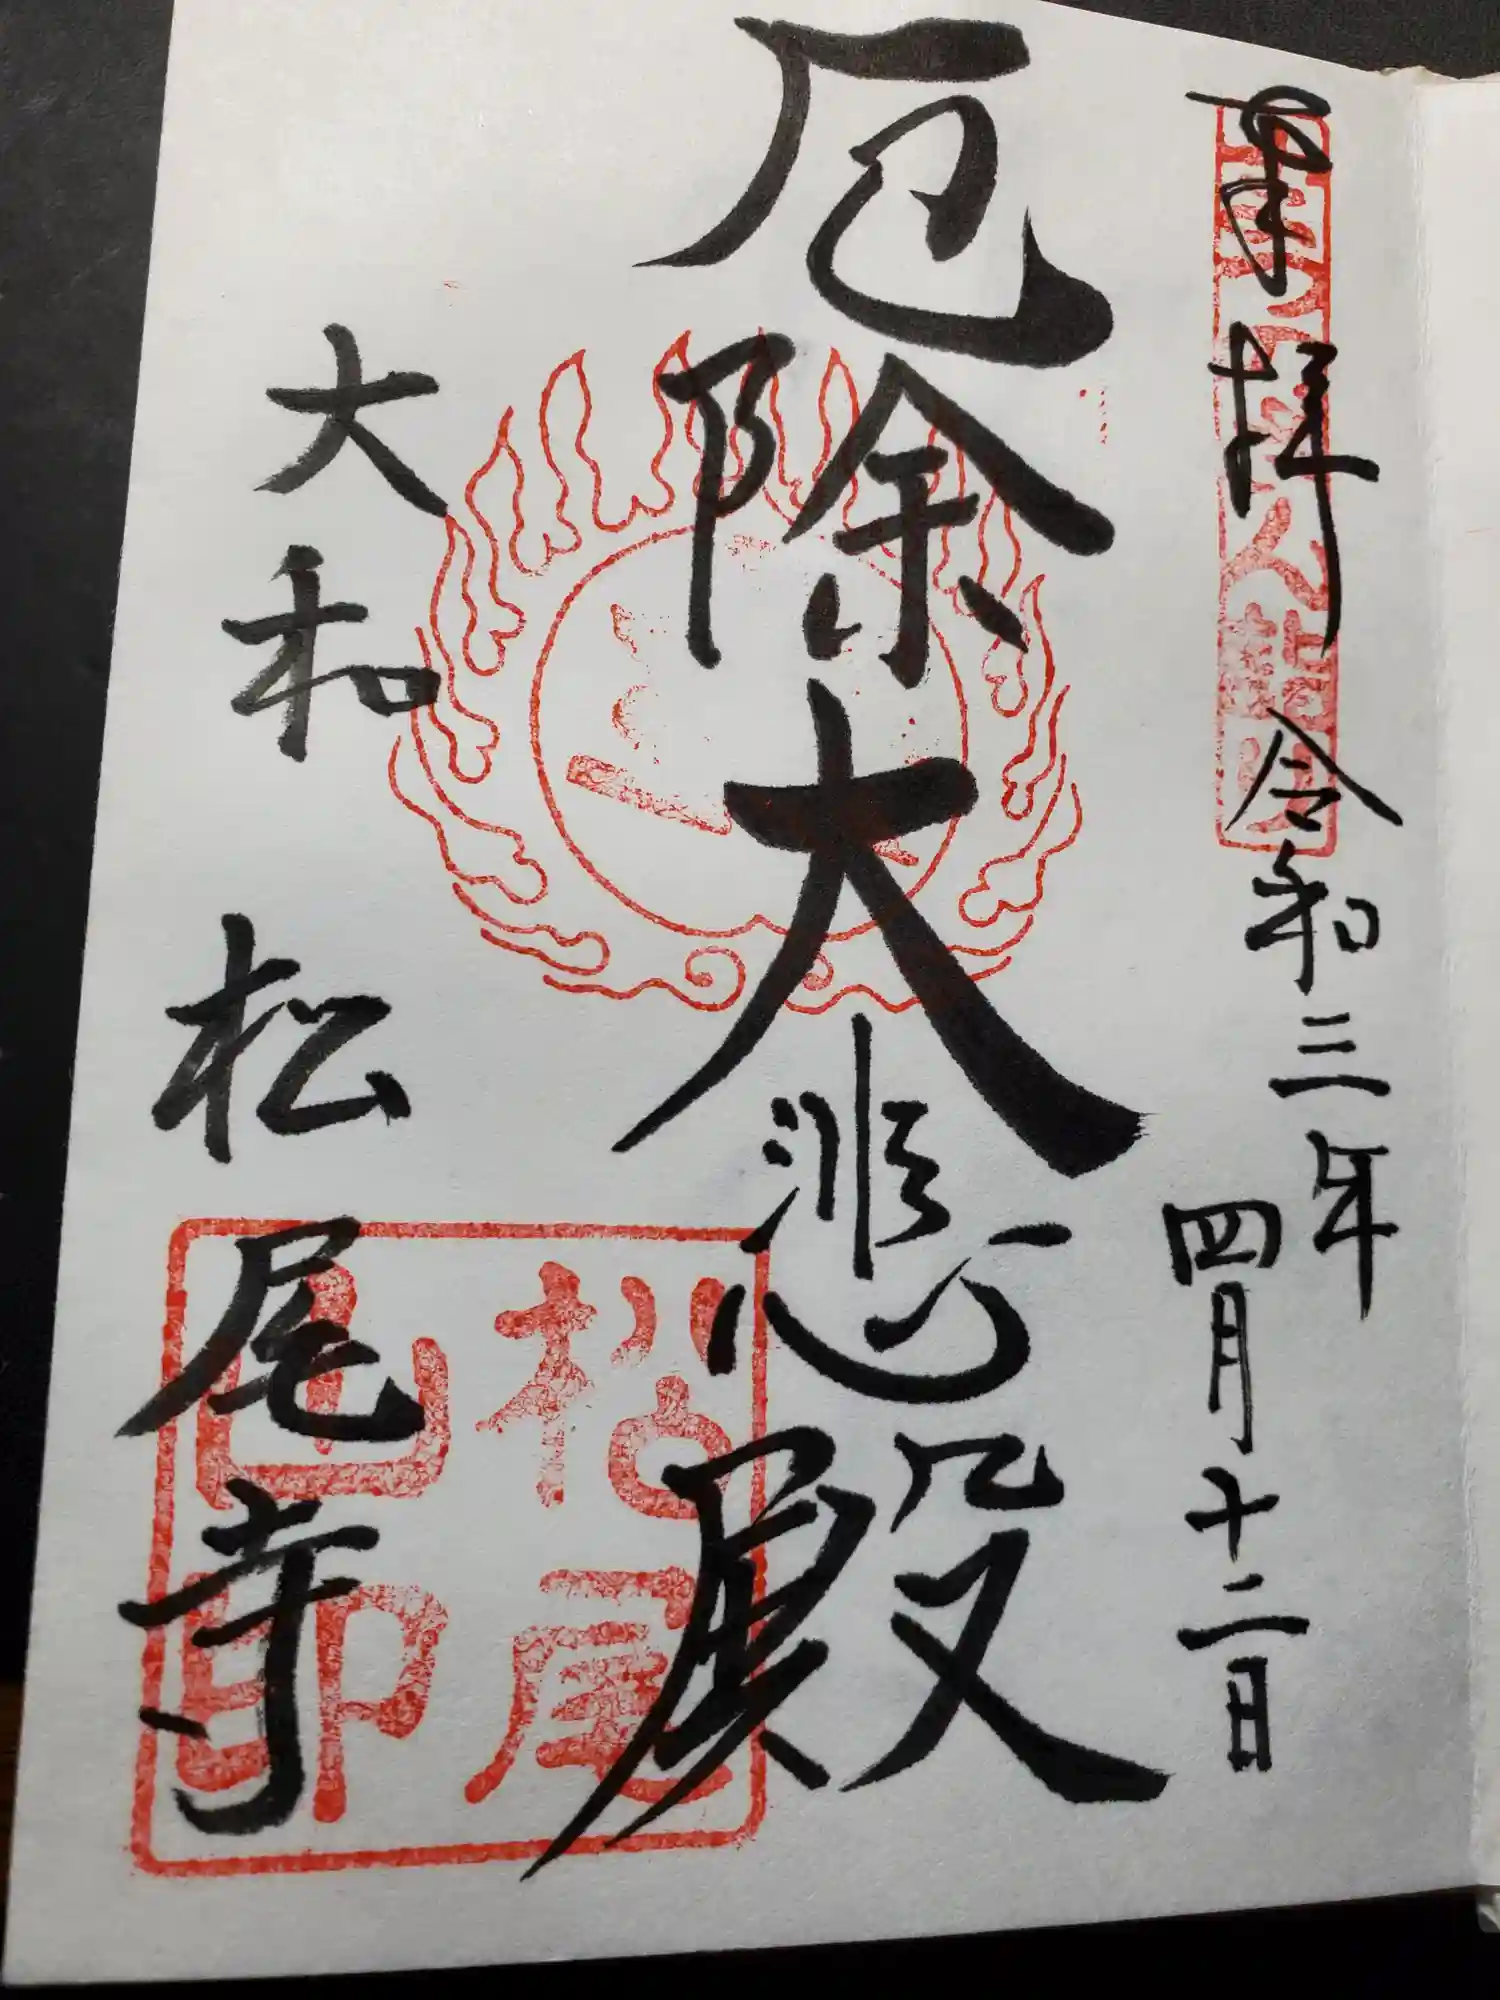 奉拝 令和三年
四月十二日
厄除大悲殿
大和 松尾寺
松尾
山印